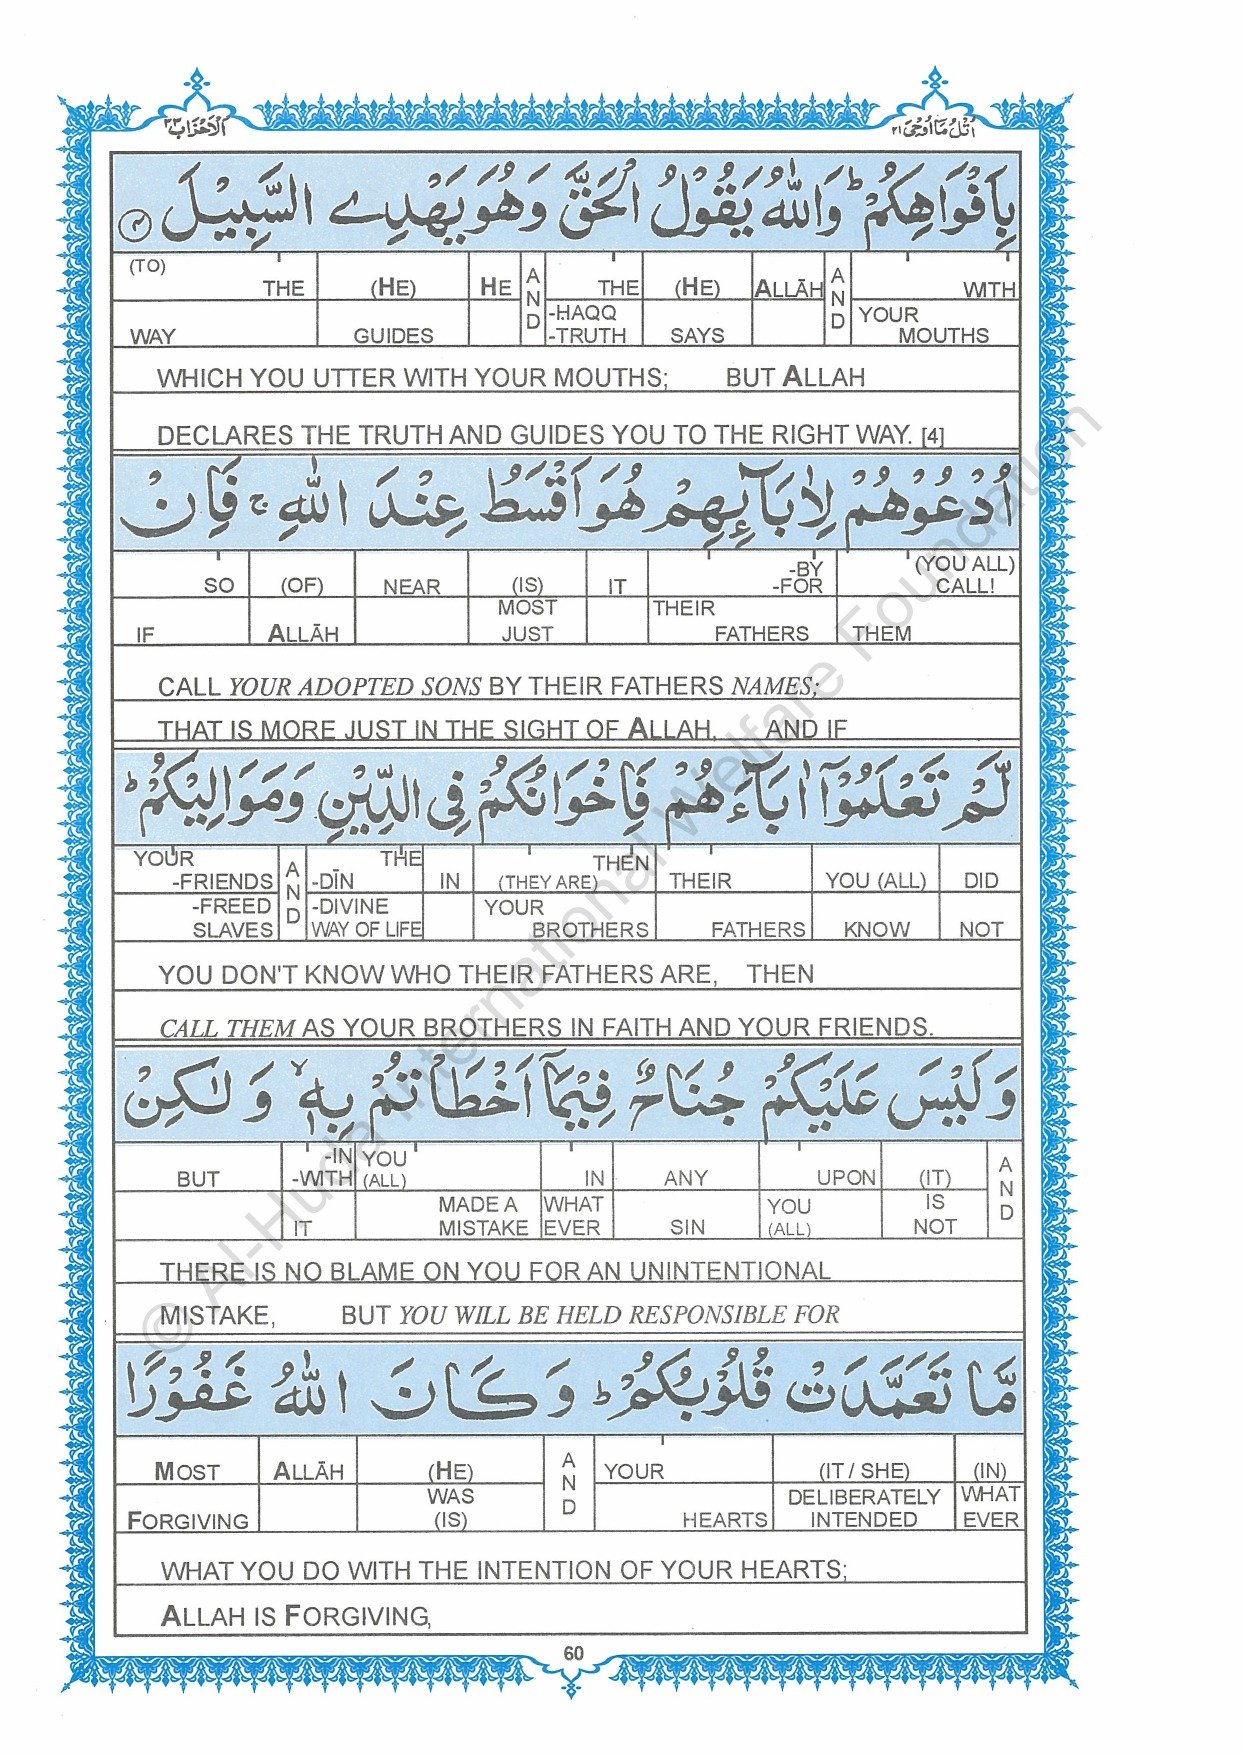 الاحزاب ٣٣ اتل ما اوحی ٢١
بِاَفْوَاهِكُمْ ؕ وَاللّٰهُ يَقُوْلُ الْحَقَّ وَهُوَ يَهْدِے السَّبِيْلَ ۴
(TO) THE | (HE) | HE | AND | THE | (HE) | ALLĀH | AND | WITH
WAY | GUIDES | -HAQQ -TRUTH | SAYS | YOUR MOUTHS
WHICH YOU UTTER WITH YOUR MOUTHS; BUT ALLAH
DECLARES THE TRUTH AND GUIDES YOU TO THE RIGHT WAY. [4]
اُدْعُوْهُمْ لِاٰبَآئِهِمْ هُوَ اَقْسَطُ عِنْدَ اللّٰهِ ۚ فَاِنْ
SO | (OF) | NEAR | (IS) | IT | -BY -FOR | (YOU ALL) CALL!
IF | ALLĀH | MOST JUST | THEIR FATHERS | THEM
CALL YOUR ADOPTED SONS BY THEIR FATHERS NAMES;
THAT IS MORE JUST IN THE SIGHT OF ALLAH. AND IF
لَّمْ تَعْلَمُوْۤا اٰبَآءَهُمْ فَاِخْوَانُكُمْ فِی الدِّيْنِ وَمَوَالِيْكُمْ ؕ
YOUR -FRIENDS | AND | THE -DĪN | IN | THEN (THEY ARE) | THEIR | YOU (ALL) | DID
-FREED SLAVES | -DIVINE WAY OF LIFE | YOUR BROTHERS | FATHERS | KNOW | NOT
YOU DON'T KNOW WHO THEIR FATHERS ARE, THEN
CALL THEM AS YOUR BROTHERS IN FAITH AND YOUR FRIENDS.
وَلَيْسَ عَلَيْكُمْ جُنَاحٌ فِيْمَاۤ اَخْطَاْتُمْ بِهٖ ۙ وَلٰكِنْ
BUT | -IN -WITH | YOU (ALL) | IN | ANY | UPON | (IT) | AND
IT | MADE A MISTAKE | WHAT EVER | SIN | YOU (ALL) | IS NOT
THERE IS NO BLAME ON YOU FOR AN UNINTENTIONAL
MISTAKE, BUT YOU WILL BE HELD RESPONSIBLE FOR
مَّا تَعَمَّدَتْ قُلُوْبُكُمْ ؕ وَكَانَ اللّٰهُ غَفُوْرًا
MOST | ALLĀH | (HE) | AND | YOUR | (IT / SHE) | (IN)
FORGIVING | WAS (IS) | HEARTS | DELIBERATELY INTENDED | WHAT EVER
WHAT YOU DO WITH THE INTENTION OF YOUR HEARTS;
ALLAH IS FORGIVING,
60
© Al-Huda International Welfare Foundation